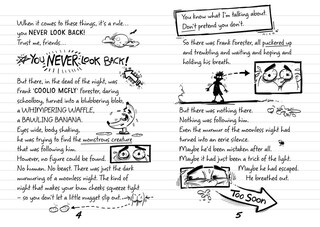 When it comes to these things, it's a rule...
you NEVER LOOK BACK!
Trust me, friends...
#YOU NEVER LOOK BACK!
But there, in the dead of the night, was
Frank 'COOLIO MCFLY' Forester, daring
schoolboy, turned into a blubbering blob,
a WHIMPERING WAFFLE,
a BAWLING BANANA.
Eyes wide, body shaking,
he was trying to find the monstrous creature
that was following him.
However, no figure could be found.
No human. No beast. There was just the dark
murmuring of a moonless night. The kind of
night that makes your bum cheeks squeeze tight
– so you don't let a little nugget slip out.
4
You know what I'm talking about.
Don't pretend you don't.
So there was Frank Forester, all puckered up
and trembling and waiting and hoping and
holding his breath.
But there was nothing there.
Nothing was following him.
Even the murmur of the moonless night had
turned into an eerie silence.
Maybe he'd been mistaken after all.
Maybe it had just been a trick of the light.
Maybe he had escaped.
He breathed out.
Too Soon
5